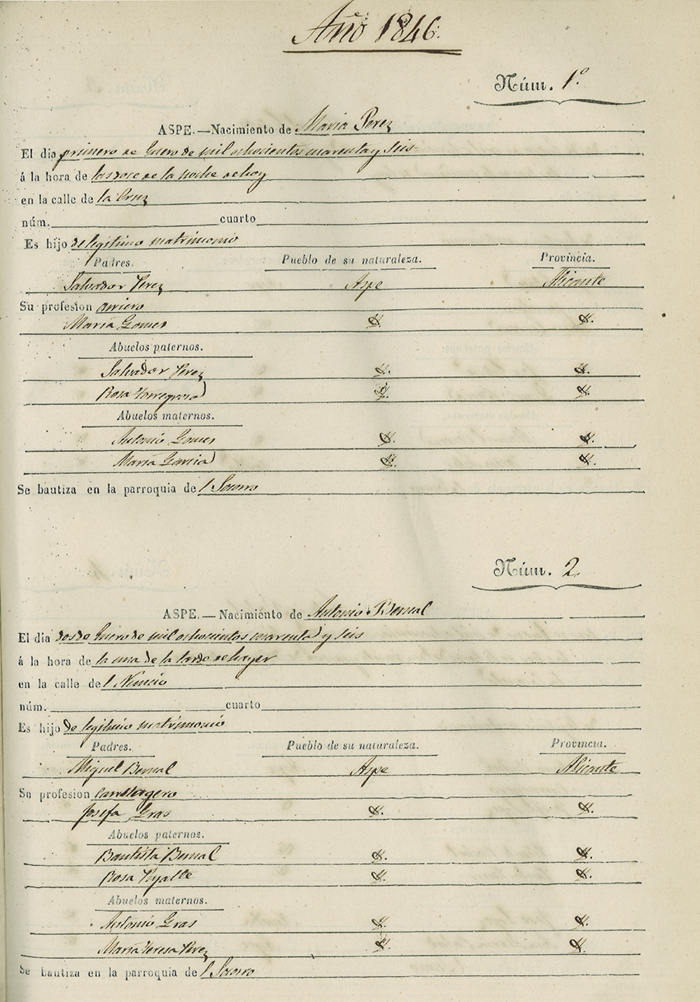 Año 1846.
Núm. 1º
ASPE.—Nacimiento de Maria Perez
El dia primero de Enero de mil ochocientos cuarenta y seis
á la hora de las doce de la noche de hoy
en la calle de la Cruz
núm. cuarto
Es hijo de legitimo matrimonio
Padres. Pueblo de su naturaleza. Provincia.
Salvador Perez Aspe Alicante
Su profesion arriero
Maria Gomes
Abuelos paternos.
Salvador Perez
Rosa Torregrosa
Abuelos maternos.
Antonio Gomes
Maria Garcia
Se bautiza en la parroquia de l Socorro
Núm. 2
ASPE.—Nacimiento de Antonio Bernal
El dia dos de Enero de mil ochocientos cuarenta y seis
á la hora de la una de la tarde de hoyer
en la calle de l
núm. cuarto
Es hijo de legitimo matrimonio
Padres. Pueblo de su naturaleza. Provincia.
Miguel Bernal Aspe Alicante
Su profesion
Josefa Gras
Abuelos paternos.
Bautista Bernal
Rosa
Abuelos maternos.
Antonio Gras
Maria Teresa Perez
Se bautiza en la parroquia de l Socorro